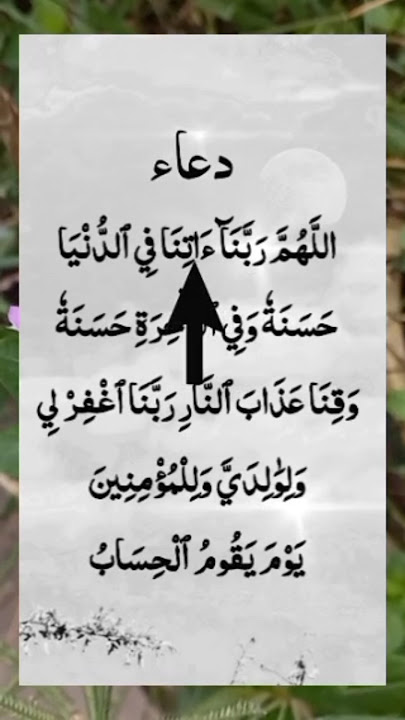 دعاء
اللَّهُمَّ رَبَّنَآ ءَاتِنَا فِي ٱلدُّنْيَا
حَسَنَةً وَفِي حَسَنَةً
وَقِنَا عَذَابَ ٱلنَّارِ رَبَّنَا ٱغْفِرْ لِي
وَلِوَٰلِدَيَّ وَلِلْمُؤْمِنِينَ
يَوْمَ يَقُومُ ٱلْحِسَابُ